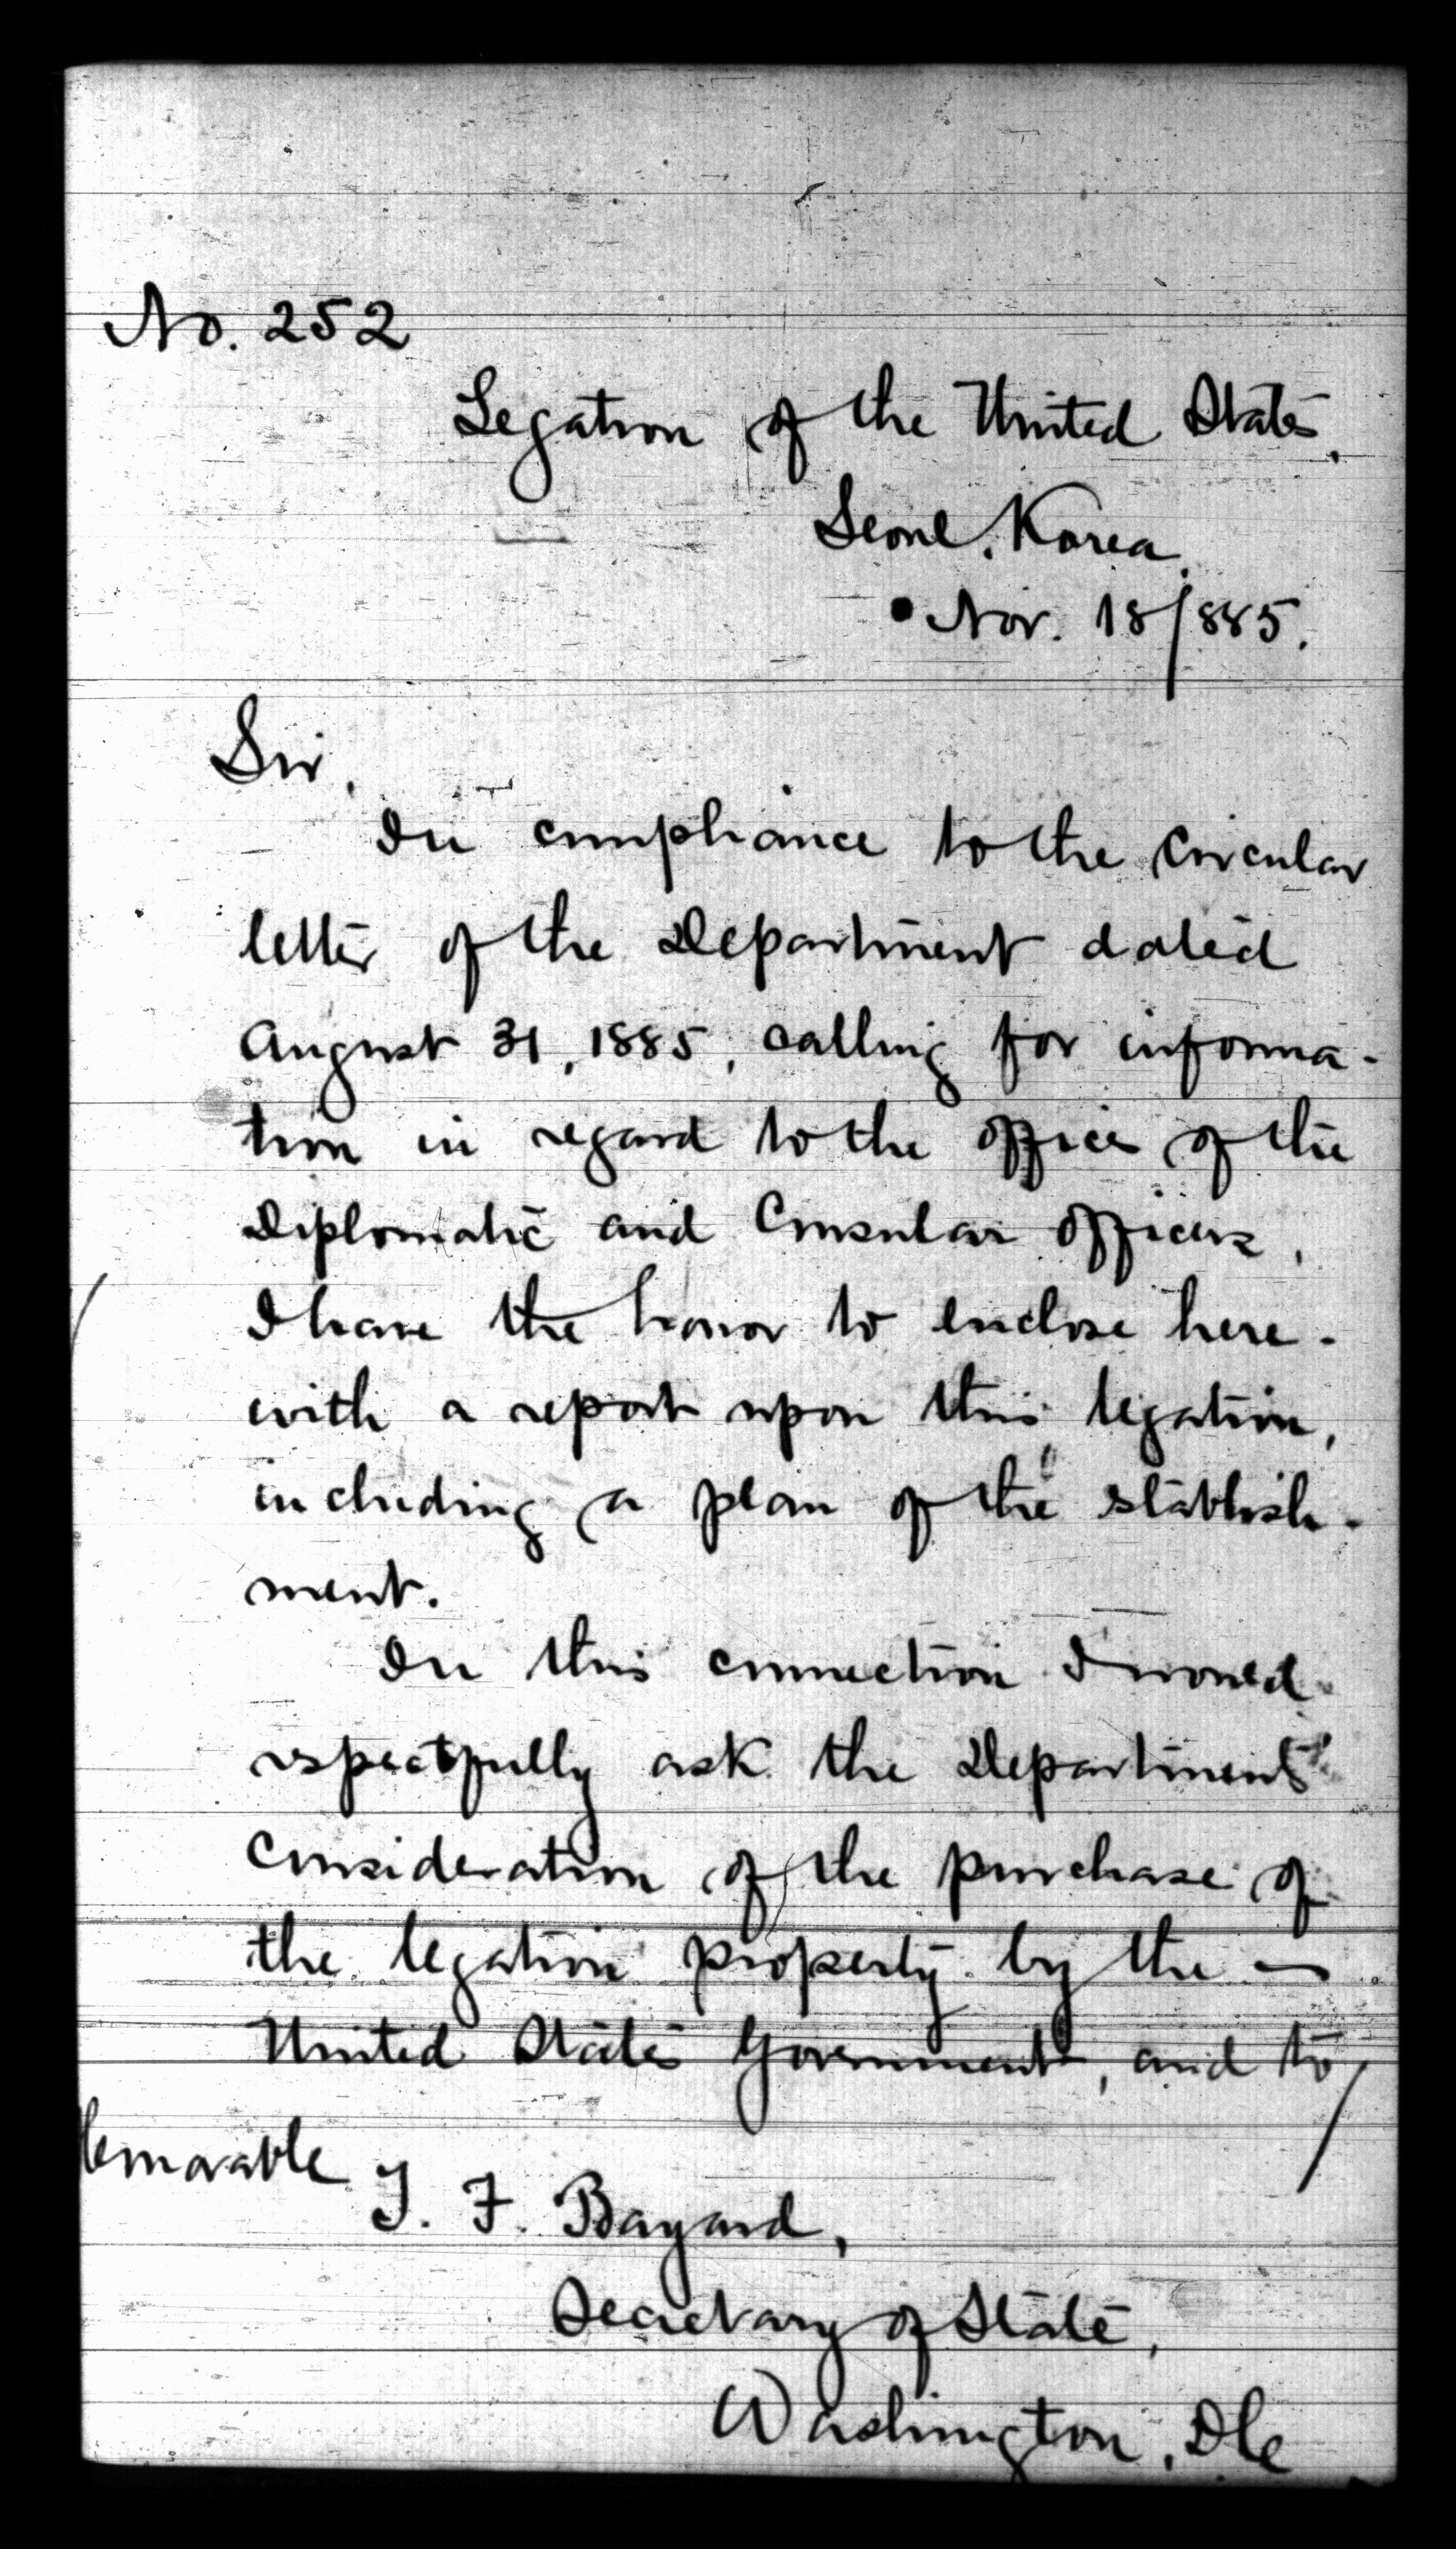 No. 252
Legation of the United States,
Seoul, Korea,
Nov. 18/885.
Sir,
In compliance to the Circular
letter of the Department dated
August 31, 1885, calling for informa-
tion in regard to the offices of the
Diplomatic and Consular officers,
I have the honor to enclose here-
with a report upon this legation,
including a plan of the establish-
ment.
In this connection I would
respectfully ask the Department's
Consideration of the purchase of
the legation property by the —
United States Government, and to
Honorable
T. F. Bayard,
Secretary of State,
Washington, D.C.